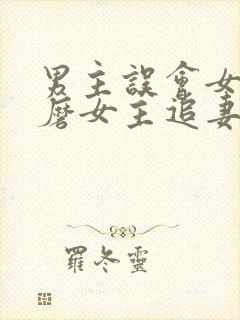 男主誤會女
磨女主追妻
羅冬靈